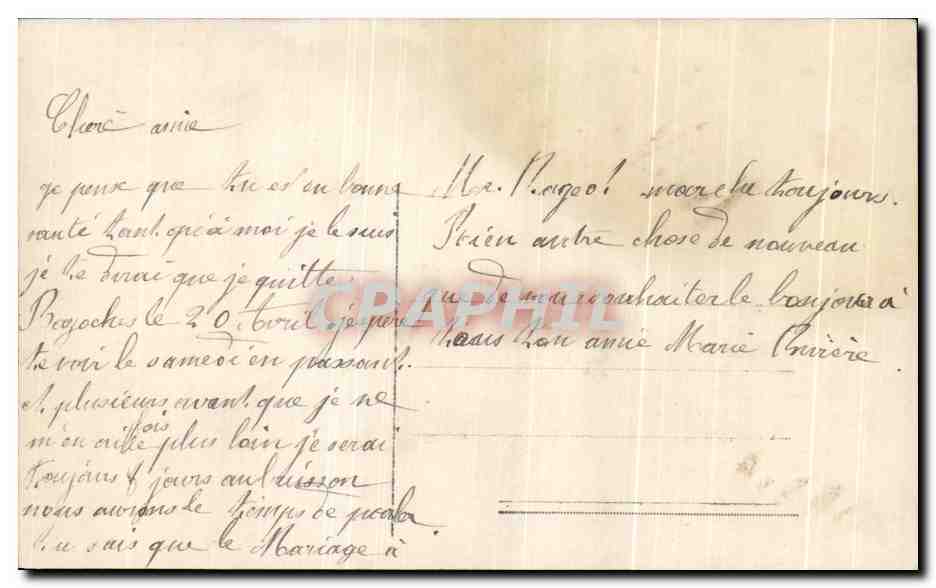 Chere amie
je pense que tu est en bonne
santé tant qu'a moi je le suis
je te dirai que je quitte
Bazoches le 20 Avril j'espère
te voir le samedi en passant
et plusieurs avant que je ne
fois
m'en aille plus loin je serai
toujours 8 jours au buisson
nous aurons le temps de parler
tu sais que le Mariage à
Mr. Nageol marche toujours.
Rien autre chose de nouveau
que de vous souhaiter le bonjour à
tous ton amie Marie Rivière
CPAPHIL